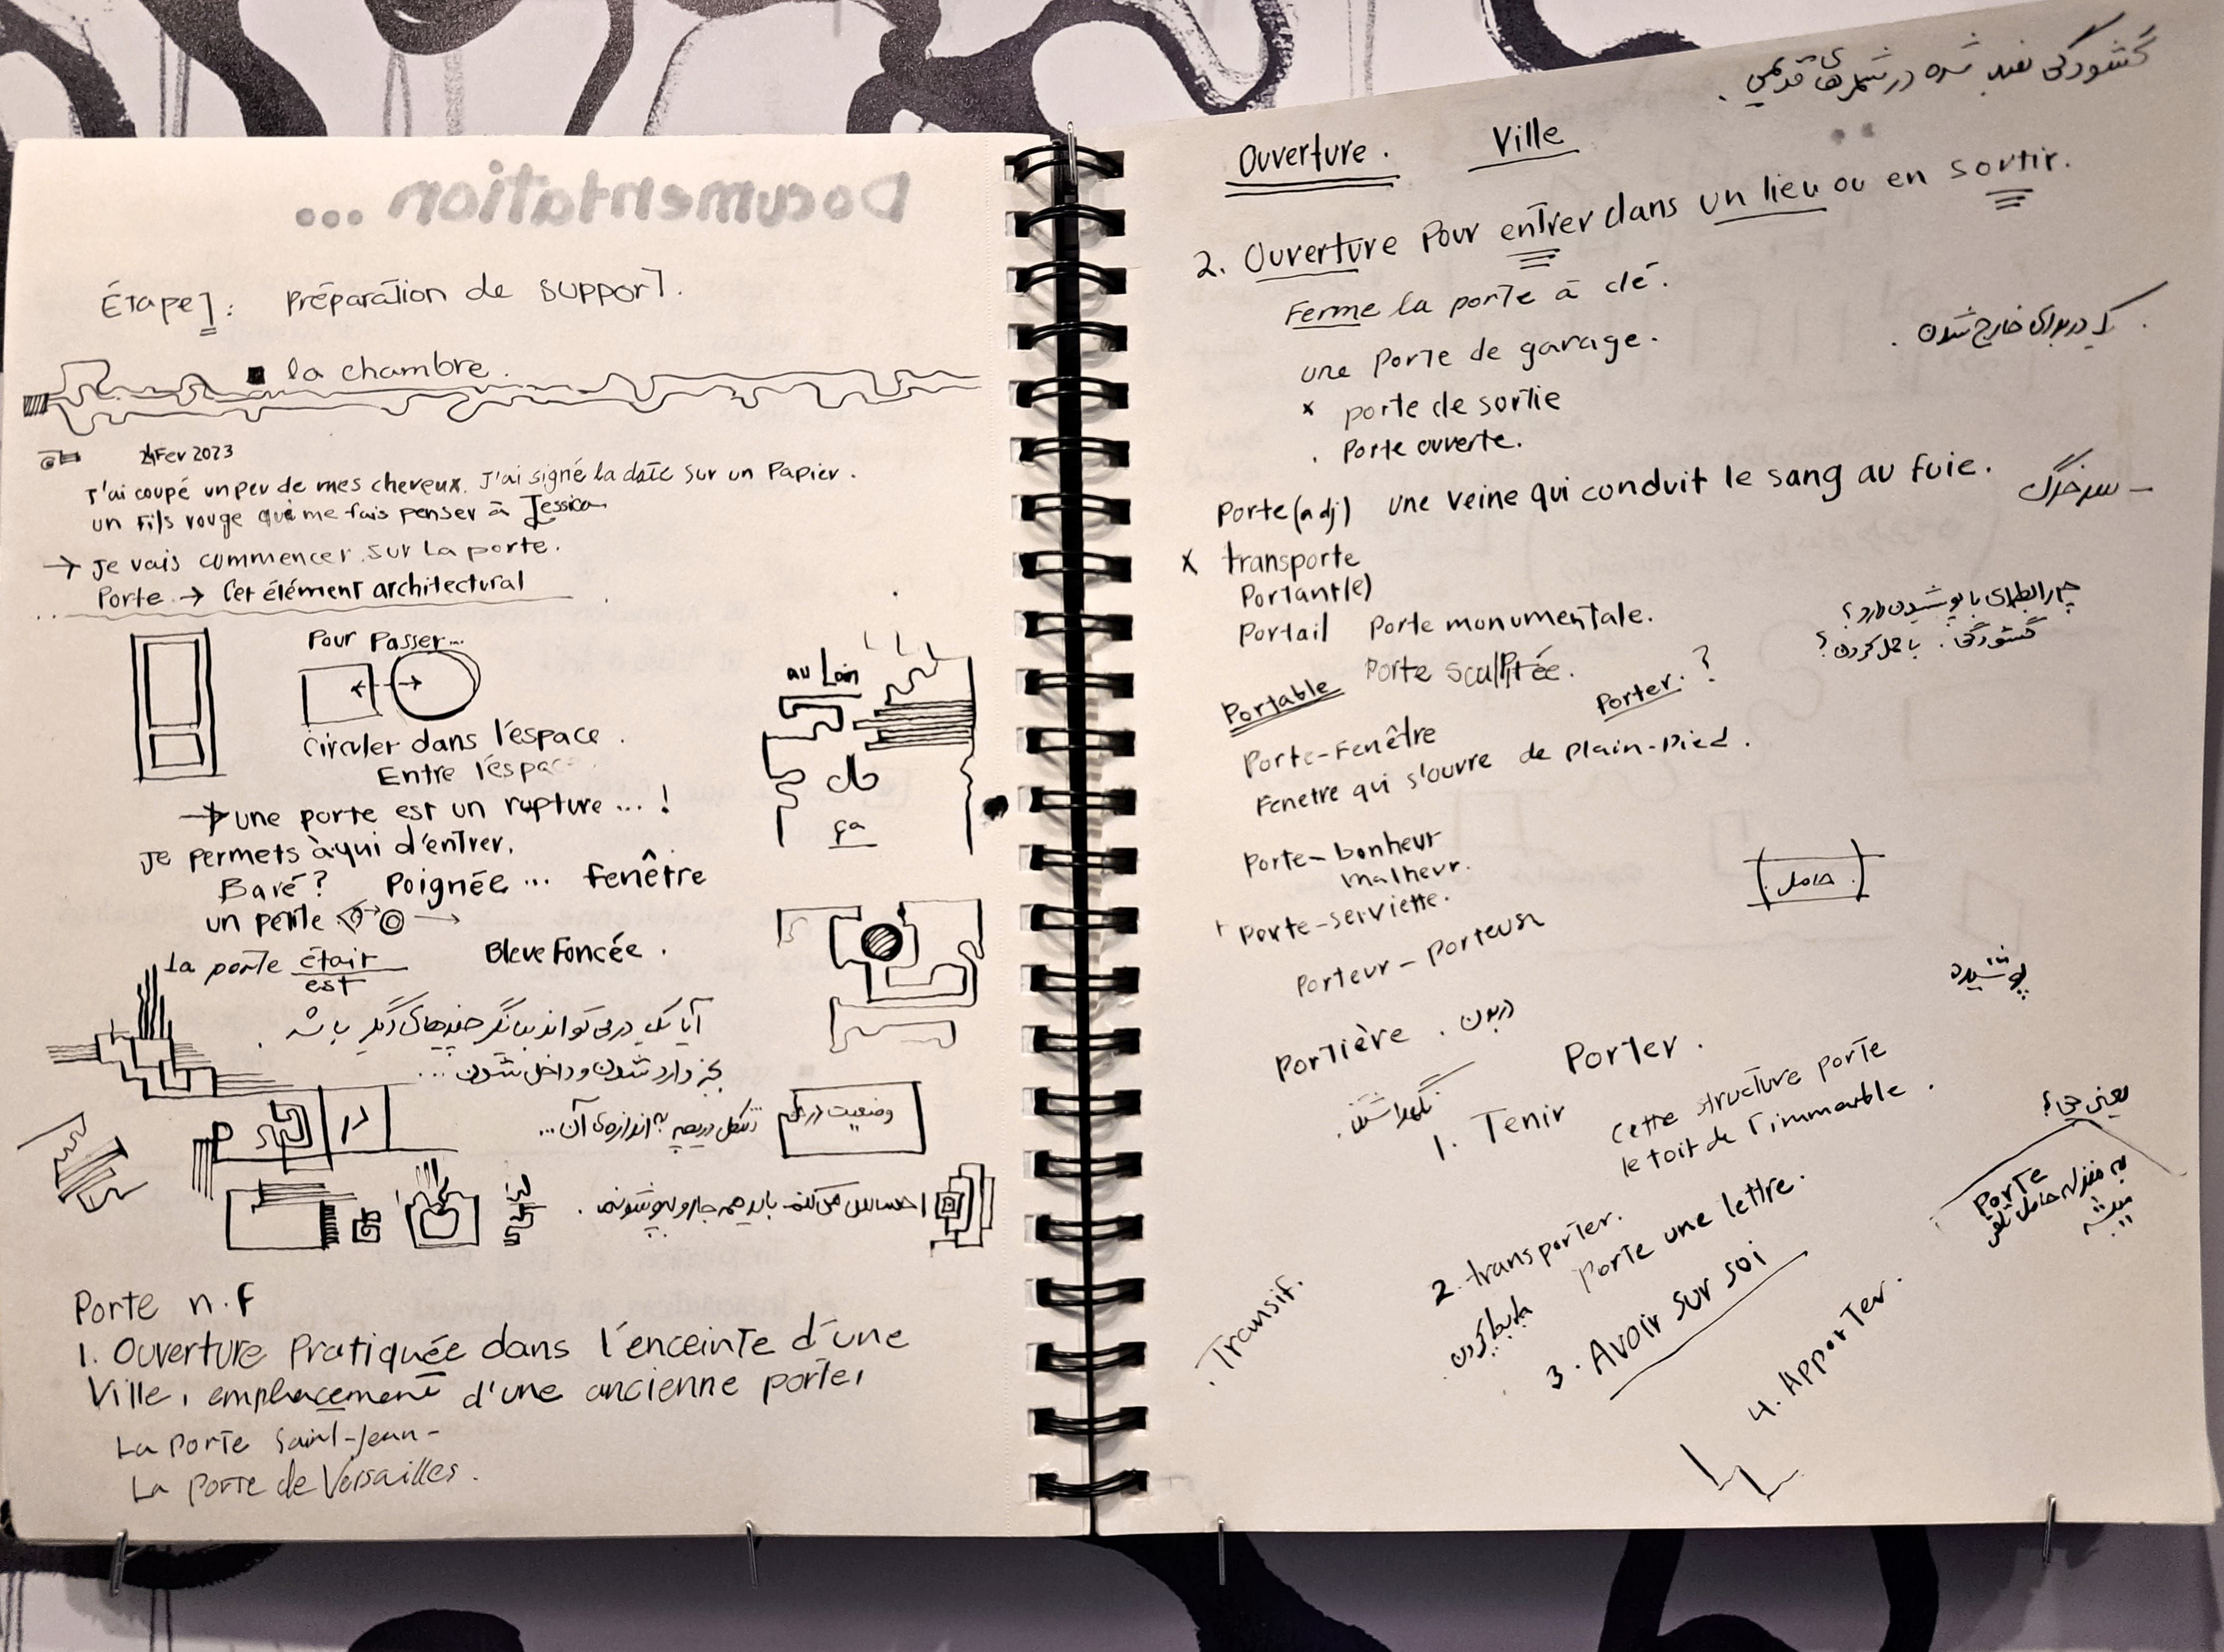 Documentation ...
Étape 1 : Préparation de support.
la chambre.
4 Fev 2023
J'ai coupé un peu de mes cheveux. J'ai signé la date sur un Papier.
un fils rouge qui me fais penser à Jessica
→ Je vais commencer sur la porte.
Porte → Cet élément architectural
Pour Passer...
Circuler dans l'espace.
Entre l'espace
au Loin
ça
→ une porte est un rupture ... !
Je permets à qui d'entrer.
Baré ? Poignée ... Fenêtre
un petite
La porte était
est
Bleue Foncée.
آیا یک در می‌تواند بیانگر چیزهای دیگر باشد
بجز وارد شدن و داخل شدن ...
در
شکل دریچه به اندازه‌ی آن ...
وضعیت در
احساس می‌کنم باید همه جا رو بپوشونم.
Porte n.f
1. Ouverture Pratiquée dans l'enceinte d'une
Ville, emplacement d'une ancienne porte,
La Porte Saint-Jean-
La Porte de Versailles.
گشودگی تعبیه شده در شهرهای قدیمی.
Ouverture. Ville
2. Ouverture Pour entrer dans un lieu ou en sortir.
Ferme la porte à clé.
une Porte de garage.
x porte de sortie
یک در برای خارج شدن.
. Porte ouverte.
Porte (adj) une veine qui conduit le sang au foie.
سرخرگ -
x transporte
Portant(e)
Portail Porte monumentale.
چه رابطه‌ای با پوشیدن دارد؟
گشودگی. با حمل کردن؟
Porte sculptée.
Portable
Porter. ?
Porte-Fenêtre
Fenetre qui s'ouvre de plain-pied.
Porte-bonheur
malheur.
Porte-serviette.
حامل
Porteur - Porteuse
پوشیدن
Portière. دربون
Porter.
نگهداشتن.
1. Tenir
Cette structure porte
le toit de l'immeuble.
یعنی چی؟
Porte
به منزله حامل تلقی
میشه
2. transporter.
Porte une lettre.
جابجا کردن.
. Transif.
3. Avoir sur soi
4. Apporter.